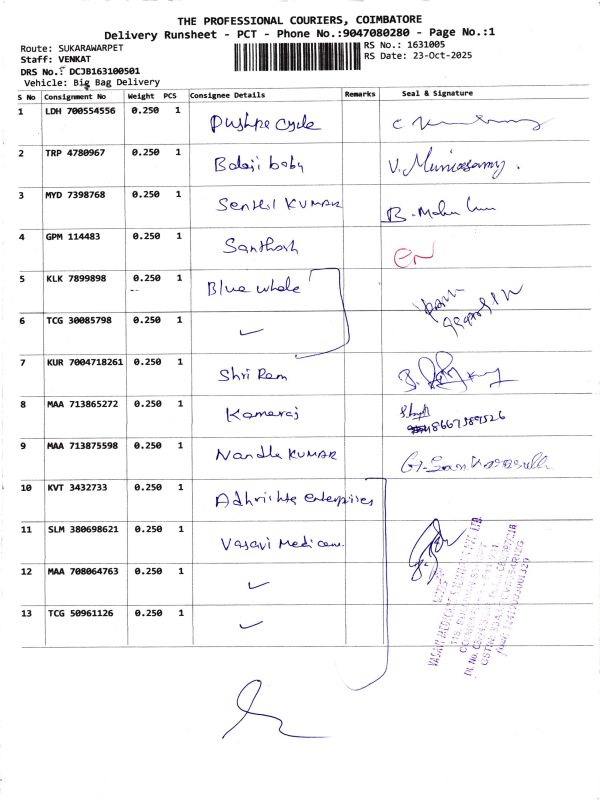 THE PROFESSIONAL COURIERS, COIMBATORE
Delivery Runsheet - PCT - Phone No.:9047080280 - Page No.:1
Route: SUKARAWARPET RS No.: 1631005
Staff: VENKAT RS Date: 23-Oct-2025
DRS No.: DCJB163100501
Vehicle: Big Bag Delivery
S No Consignment No Weight PCS Consignee Details Remarks Seal & Signature
1 LDH 700554556 0.250 1 Pushpa Cycle
2 TRP 4780967 0.250 1 Balaji baby V. Muniasamy.
3 MYD 7398768 0.250 1 Senthil KUMAR B. Mohan
4 GPM 114483 0.250 1 Santhosh
5 KLK 7899898 0.250 1 Blue whale
6 TCG 30085798 0.250 1 ✓
7 KUR 7004718261 0.250 1 Shri Ram
8 MAA 713865272 0.250 1 Kamaraj
9 MAA 713875598 0.250 1 Nandha KUMAR
10 KVT 3432733 0.250 1 Adhrishta enterprises
11 SLM 380698621 0.250 1 Vasavi Medicam.
12 MAA 708064763 0.250 1 ✓
13 TCG 50961126 0.250 1 ✓